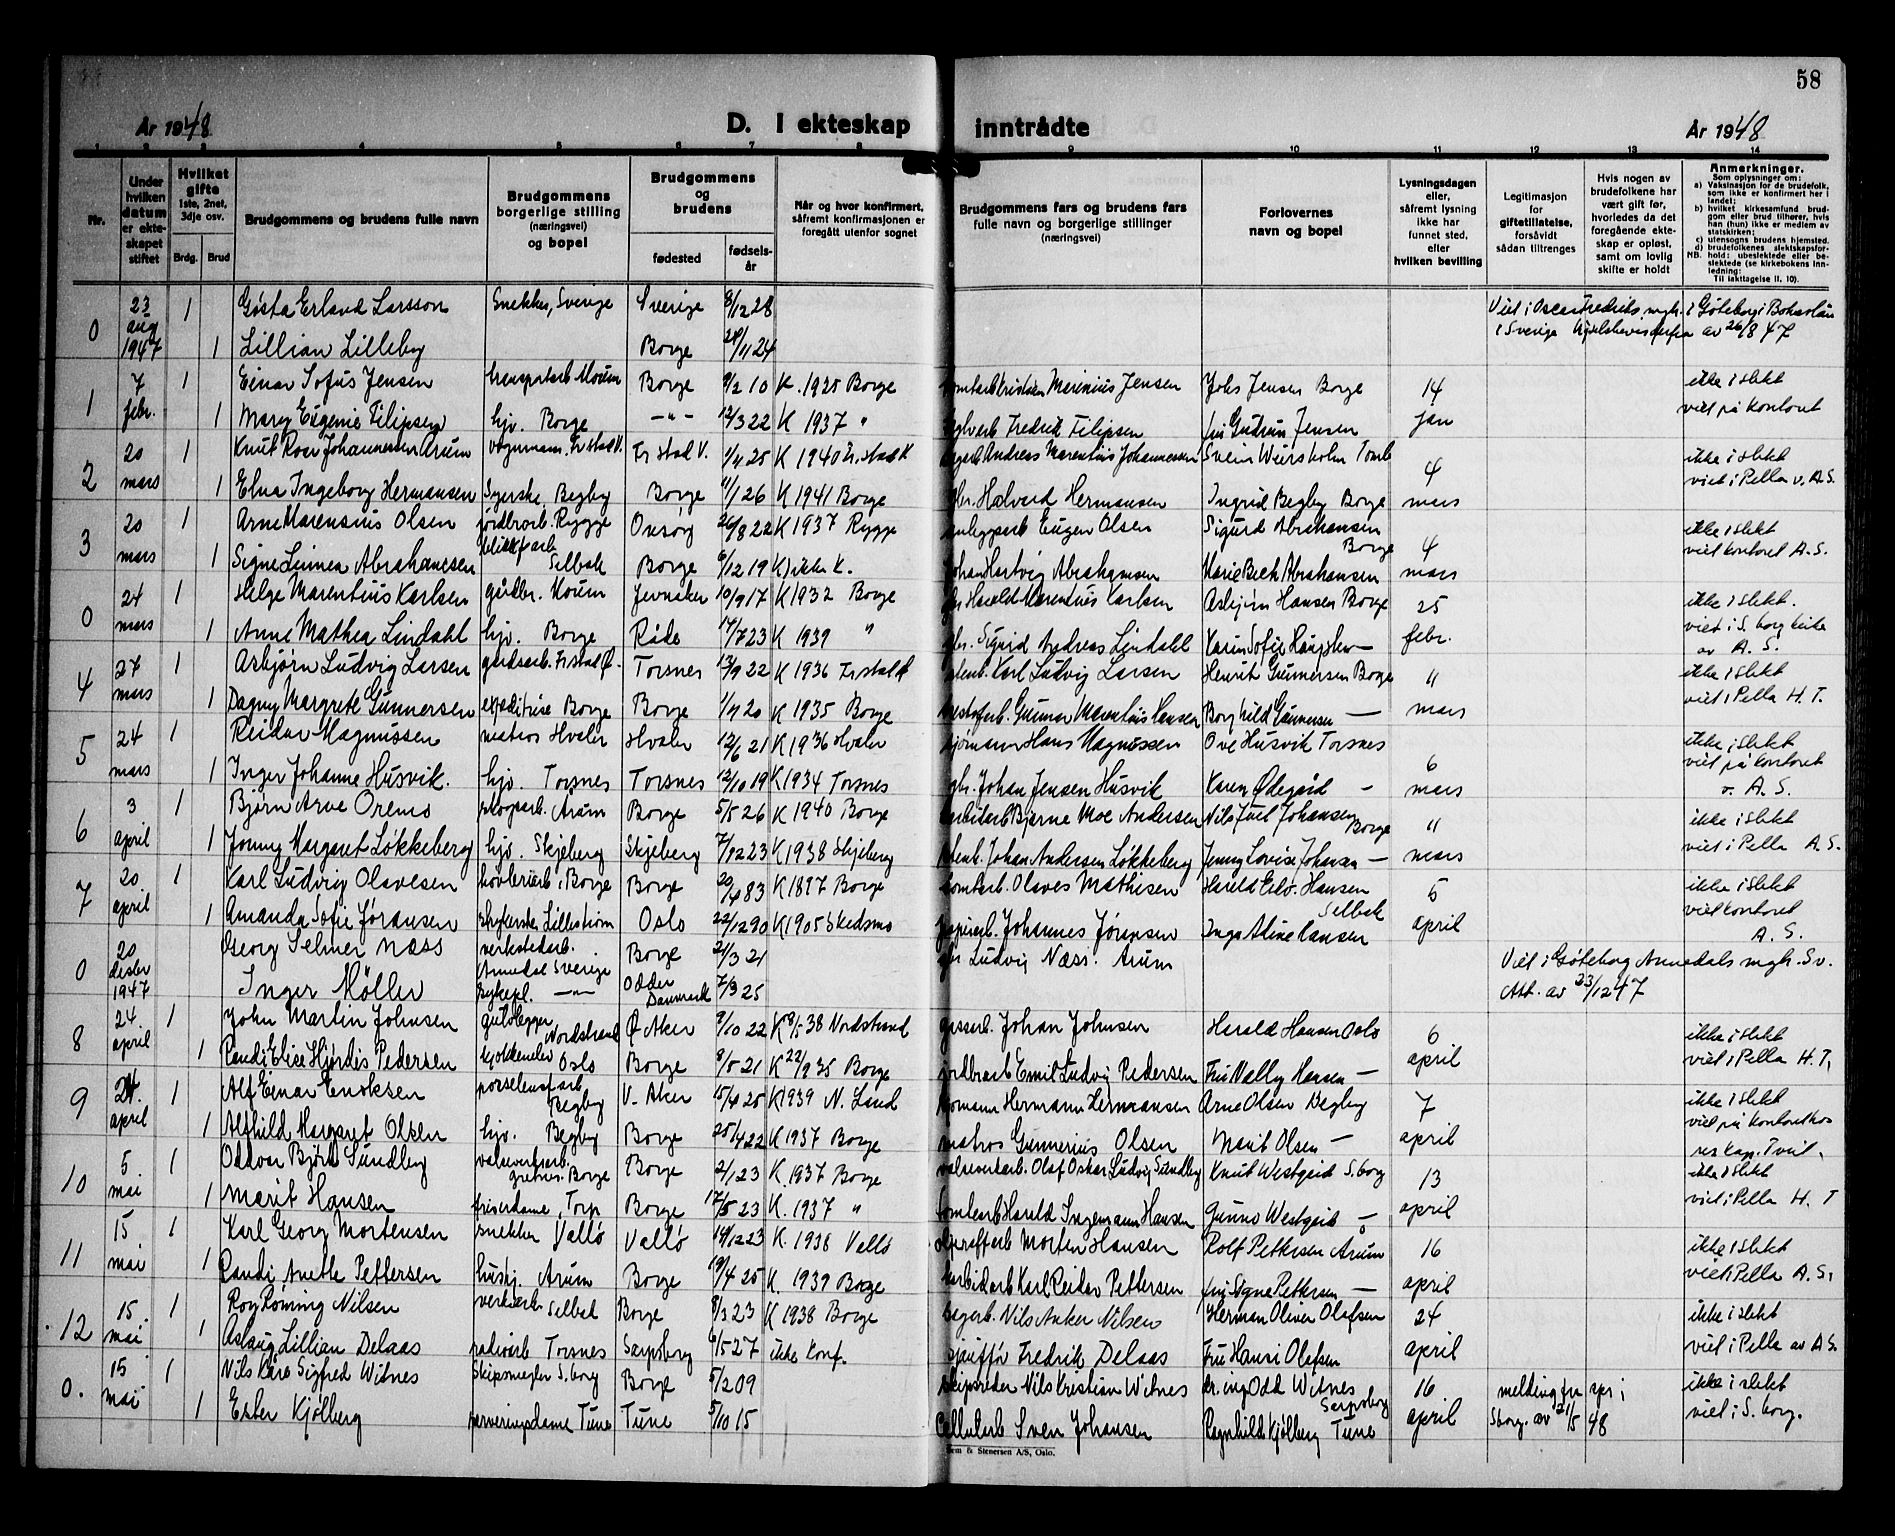 58
År 1948
D. I ekteskap inntrådte
År 1948
1 2 3 4 5 6 7 8 9 10 11 12 13 14
Nr.
Under hvilken datum er ekteskapet stiftet
Hvilket gifte 1ste, 2net, 3dje osv.
Brdg. Brud
Brudgommens og brudens fulle navn
Brudgommens borgerlige stilling (næringsvei) og bopel
Brudgommens og brudens
fødested
fødselsår
Når og hvor konfirmert, såfremt konfirmasjonen er foregått utenfor sognet
Brudgommens fars og brudens fars fulle navn og borgerlige stillinger (næringsvei)
Forlovernes navn og bopel
Lysningsdagen eller, såfremt lysning ikke har funnet sted, eller hvilken bevilling
Legitimasjon for giftetillatelse, forsåvidt sådan tiltrenges
Hvis nogen av brudefolkene har vært gift før, hvorledes da det foregående ekteskap er opløst, samt om lovlig skifte er holdt
Anmerkninger.
Som oplysninger om:
a) Vaksinasjon for de brudefolk, som ikke er konfirmert her i landet;
b) hvilket kirkesamfund brudgom eller brud tilhører, hvis han (hun) ikke er medlem av statskirken;
c) utensogns brudens hjemsted.
d) brudefolkenes slektskapsforhold: ubeslektede eller beslektede (se kirkebokens innledning:
NB. Til iakttagelse II. 10).
0 23 aug 1947 1 Gösta Erland Larsson Snekker, Sverige Sverige 8/12 28 Viet i Oscar Fredriks mgh. i Göteborg i Bohuslän
1 Lillian Lilleby Borge 24 i Sverige av 26/8 47
1 7 febr. 1 Einar Sofus Jensen Moum Borge 9/2 10 K. 1925 Borge Marinius Jensen Johs Jensen Borge 14 jan ikke i slekt
1 Mary Eugenie Filipsen hjv. Borge —"— 12/3 22 K 1937 " Fredrik Filipsen fru Gudrun Jensen viet på kontoret
2 20 mars 1 Knut Roar Johannessen Arum vognmann. Fr.stad V. Fr stad V. 1/4 25 K 1940 Fr.stad V Andreas Marentius Johannessen Svein Weirsholm Torsnes 4 mars ikke i slekt
1 Elna Ingeborg Hermansen Syerske, Begby Borge 11/1 26 K 1941 Borge gbr. Halvard Hermansen Ingrid Begby Borge viet i Pella v. A.S.
3 20 mars 1 Arne Marensius Olsen jordbrarb. Rygge Onsøy 26/8 22 K 1937 Rygge Eugen Olsen Sigurd Abrahansen Borge 4 mars ikke i slekt
1 Signe Linnea Abrahamsen Selbak Borge 6/12 19 K) ikke K. Johan Hartvig Abrahamsen Marie Bech Abrahansen viet kontoret A.S.
0 24 mars 1 Helge Marentius Karlsen gårdbr. Moum Jevnaker 10/9 17 K 1932 Borge Harald Marentius Karlsen Asbjørn Hansen Borge 25 febr. ikke i slekt.
1 Anne Mathea Lindahl hjv. Borge Råde 14/7 23 K 1939 " gbr. Sigurd Andreas Lindahl Karin Sofie — viet i S.borg kirke av A.S.
4 27 mars 1 Asbjørn Ludvig Larsen gårdsarb. Fr.stad Ø. Torsnes 13/9 22 K 1936 Fr.stad Ø Karl Ludvig Larsen Henrik Gunnersen Borge 11 mars ikke i slekt
1 Dagny Margrete Gunnersen expeditrise Borge Borge 1/4 20 K 1935 Borge Gunnar Marentius Hansen Borghild Gunnersen — viet i Pella H.T.
5 24 mars 1 Reidar Magnussen matros Hvaler Hvaler 12/6 21 K 1936 Hvaler sjømann Hans Magnussen Ove Husvik Torsnes 6 mars ikke i slekt
1 Inger Johanne Husvik. hjv. Torsnes Torsnes 12/10 19 K 1934 Torsnes gbr. Johan Jensen Husvik Karen Ødegård — viet på kontoret v. A.S.
6 3 april 1 Bjørn Arve Oremo skogsarb. Årum Borge 5/5 26 K 1940 Borge Bjarne Moe Andersen Nils Juel Johansen Borge 11 mars ikke i slekt
1 Jonny Margaret Løkkeberg hjv. Skjeberg Skjeberg 7/12 23 K 1938 Skjeberg Johan Andersen Løkkeberg Jenny Lovise Johansen — viet i Pella A.S.
7 20 april 1 Karl Ludvig Olavesen høvleriarb. Borge Borge 20/4 83 K 1897 Borge Olaves Mathisen Harald Edv. Hansen Selbak 5 april ikke i slekt
1 Amanda Sofie Jøransen strykerske Lillestrøm Oslo 22/12 90 K 1905 Skedsmo Johannes Jøransen Inga Aline Hansen viet kontoret A.S.
0 20 desbr 1947 Georg Selmer Næss verkstedarb. Annedal Sverige Borge 21/3 21 Ludvig Næss. Årum Viet i Göteborg Annedals mgh. Sv.
Inger Möller sykepl. —"— Odder Danmark 7/3 25 Att. av 23/12 47
8 24. april 1 John Martin Johnsen gulvlegger Nordstrand Ø Aker 9/10 22 K 38 Nordstrand Johan Johnsen Harald Hansen Oslo 6 april ikke i slekt
1 Randi Elise Hjørdis Pedersen Oslo Borge 9/5 21 K 22/9 35 Borge jordbrarb Emil Ludvig Pedersen Fru Nally Hansen — viet i Pella H.T.
9 24. april 1 Alf Einar Enoksen porselensf.arb Begby V. Aker 15/4 25 K 1939 N. Land Hermann Hermansen Arne Olsen Begby 7 april ikke i slekt
1 Alfhild Margaret Olsen hjv. Begby Borge 25/4 22 K 1937 Borge matros Gunnerius Olsen Marit Olsen — viet på kontoret hos res kap. Tveit.
10 5. mai 1 Oddvar Bjørn Sundby valseverksarb. Borge Borge 2/1 23 K. 1937 Borge valseverkarb. Olaf Oskar Ludvig Sundby Knut Westgård S.borg 13 april ikke i slekt
1 Marit Hansen friserdame, Torp Borge 17/5 23 K. 1937 " Harald Ingemann Hansen Gunno Westgård — viet i Pella H.T
11 15 mai 1 Karl Georg Mortensen snekker Vallø Vallø 14/12 23 K. 1938 Vallø Morten Hansen Rolf Pettersen Årum 16 april ikke i slekt
1 Randi Anette Pettersen hushj. Årum Borge 19/4 25 K. 1939 Borge Karl Reidar Pettersen fru Signe Pettersen — viet i Pella A.S.
12 15. mai 1 Roy Røning Nilsen Selbak Borge 9/3 23 K 1938 Borge Nils Anker Nilsen Herman Oliver Olafsen 24 april ikke i slekt
1 Aslaug Lillian Delaas Torsnes Sarpsborg 6/5 27 ikke konf. sjauffør Fredrik Delaas Fru Hansi Olafsen viet i Pella av A.S.
0. 15 mai 1 Nils Kåre Sigfred Witnes Skipsmegler S.borg Borge 5/2 09 skipsreder Nils Kristian Witnes dr. ing Odd Witnes Sarpsborg 16 april melding fra spr i ikke i slekt
1 Ester Kjølberg serveringsdame Tune Tune 5/10 15 Cellularb Sven Johansen Ragnhild Kjølberg Tune Sborg. av 21/5 48 viet i S.borg.
Sem & Stenersen A/S, Oslo.